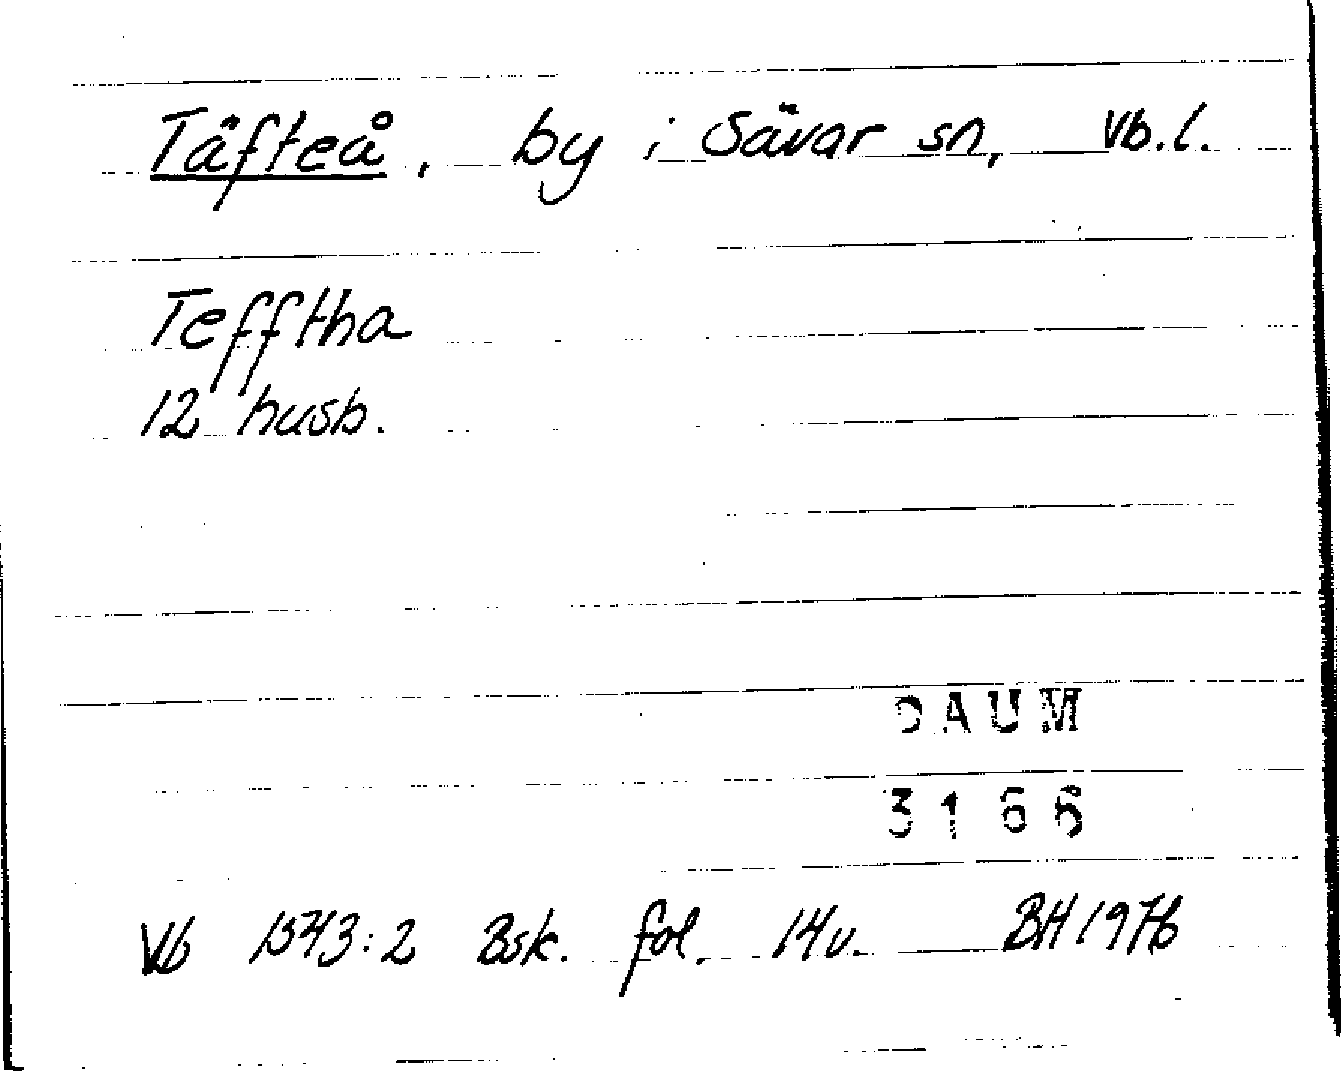 Täfteå, by i Sävar sn, Vb.l.
Tefftha
12 husb.
DAUM
3166
Vb 1543:2 Bsk. fol. 14v. BH 1976